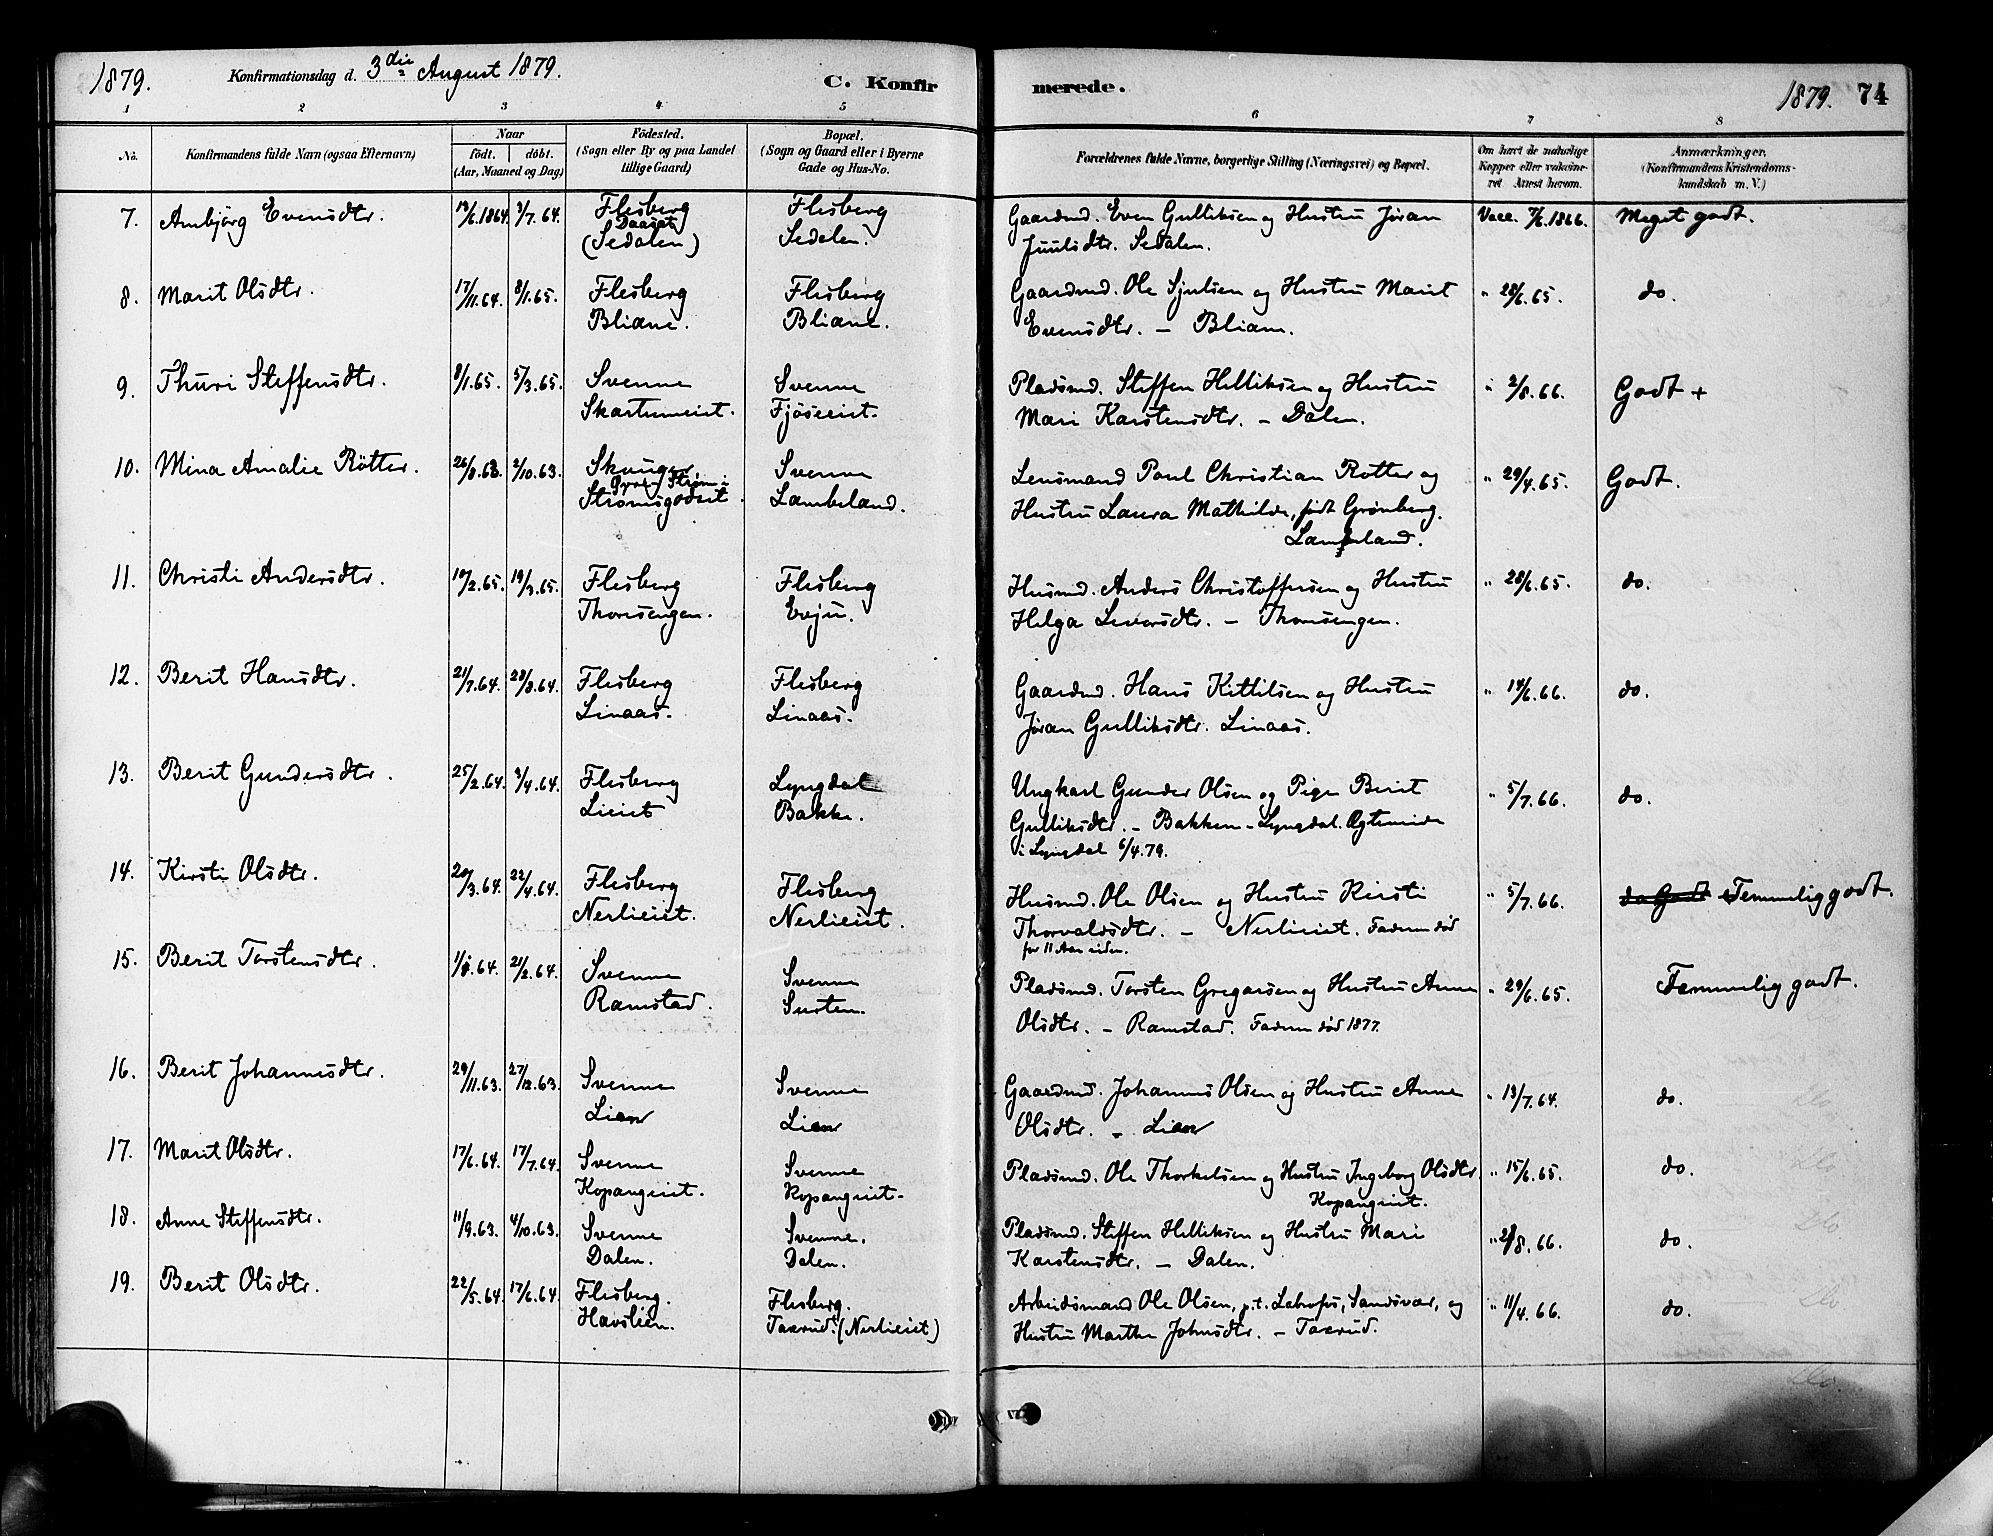 1879. Konfirmationsdag d. 3die August 1879. C. Konfir merede. 1879. 74
1 2 3 4 5 6 7 8
No. Konfirmandens fulde Navn (ogsaa Efternavn) Naar födt. döbt. (Aar, Maaned og Dag) Födested. (Sogn eller By og paa Landet tillige Gaard) Bopæl. (Sogn og Gaard eller i Byerne Gade og Hus-No. Forældrenes fulde Navne, borgerlige Stilling (Næringsvei) og Bopæl. Om havt de naturlige Kopper eller vaksineret Attest herom. Anmærkninger. (Konfirmandens Kristendomskundskab m. V.)
7. Anbjörg Evensdtr. 19/6.1864. 3/7.64. Flesberg Flesberg Gaardmd. Even Gulliksen og Hustru Jøran Vacc. 7/6.1866. Meget godt.
Daaset (Sedalen) Sedalen. Juulsdtr. Sedalen.
8. Marit Olsdtr. 17/11.64. 8/1.65. Flesberg Flesberg Gaardmd. Ole Sjulsen og Hustru Marit " 28/6.65. do.
Bliane. Bliane. Evensdtr. – Bliane.
9. Thuri Steffensdtr. 8/1.65. 5/3.65. Svenne Svenne Pladsmd. Steffen Helliksen og Hustru " 2/8.66. Godt +
Skartumeiet. Fjöseiet. Mari Karstensdtr. – Dalen.
10. Mina Amalie Rötter. 26/8.63. 2/10.63. Skouger Svenne Lensmand Paul Christian Rotter og " 29/4.65. Godt.
Strømsgodset. Lambeland. Hustru Laura Mathilde, født Grønberg.
Lambeland.
11. Christi Andersdtr. 10/2.65. 19/3.65. Flesberg Flesberg Husmd. Anders Christoffersen og Hustru " 28/6.65. do.
Thoresengen. Evju. Helga Seversdtr. – Thoresengen.
12. Berit Hansdtr. 21/7.64. 28/8.64. Flesberg Flesberg Gaardmd. Hans Kittilsen og Hustru " 14/6.66. do.
Linaas. Linaas. Jøran Gulliksdtr. Linaas.
13. Berit Gundersdtr. 25/2.64. 3/4.64. Flesberg Lyngdal Ungkarl Gunder Olsen og Pige Berit " 5/7.66. do.
Lieiet Bakke. Gulliksdtr. – Bakken – Lyngdal. Ægteviede
i Lyngdal 6/4.79.
14. Kirsti Olsdtr. 20/3.64. 22/4.64. Flesberg Flesberg Husmd. Ole Olsen og Hustru Kirsti " 5/7.66. do Godt Temmelig godt.
Nerlieiet. Nerlieiet. Thorvaldsdtr. – Nerlieiet. Faderen død
for 11 Aar siden.
15. Berit Torstensdtr. 1/8.64. 21/2.64. Svenne Svenne Pladsmd. Torsten Gregarsen og Hustru Anne " 29/6.65. Temmelig godt.
Ramstad. Susten. Olsdtr. – Ramstad. Faderen død 1877.
16. Berit Johannesdtr. 29/11.63. 27/12.63. Svenne Svenne Gaardmd. Johannes Olsen og Hustru Anne " 13/7.64. do.
Lien Lien Olsdtr. – Lien
17. Marit Olsdtr. 17/6.64. 17/7.64. Svenne Svenne Pladsmd. Ole Thorkelsen og Hustru Ingeborg Olsdtr. " 15/6.65. do.
Kopangeiet. Kopangeiet. Kopangeiet.
18. Anne Steffensdtr. 11/9.63. 4/10.63. Svenne Svenne. Pladsmd. Steffen Helliksen og Hustru Mari " 2/8.66. do.
Dalen. Dalen. Karstensdtr. – Dalen.
19. Berit Olsdtr. 22/5.64. 17/6.64. Flesberg. Flesberg. Arbeidsmand Ole Olsen, p.t. Labrofos, Sandsvær, og " 11/4.66. do.
Havslien. Taxrud. (Nerlieiet) Hustru Marthe Johnsdtr. – Taxrud.